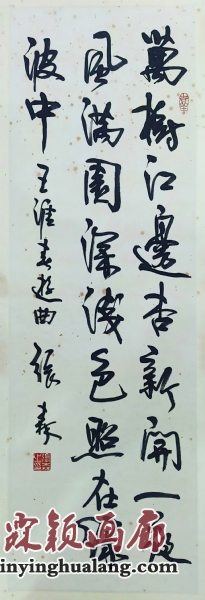 萬樹江邊杏新開一夜
風滿園深淺色照在綠
波中 王涯春遊曲 張森
霖颖画廊
inyinghualang.com